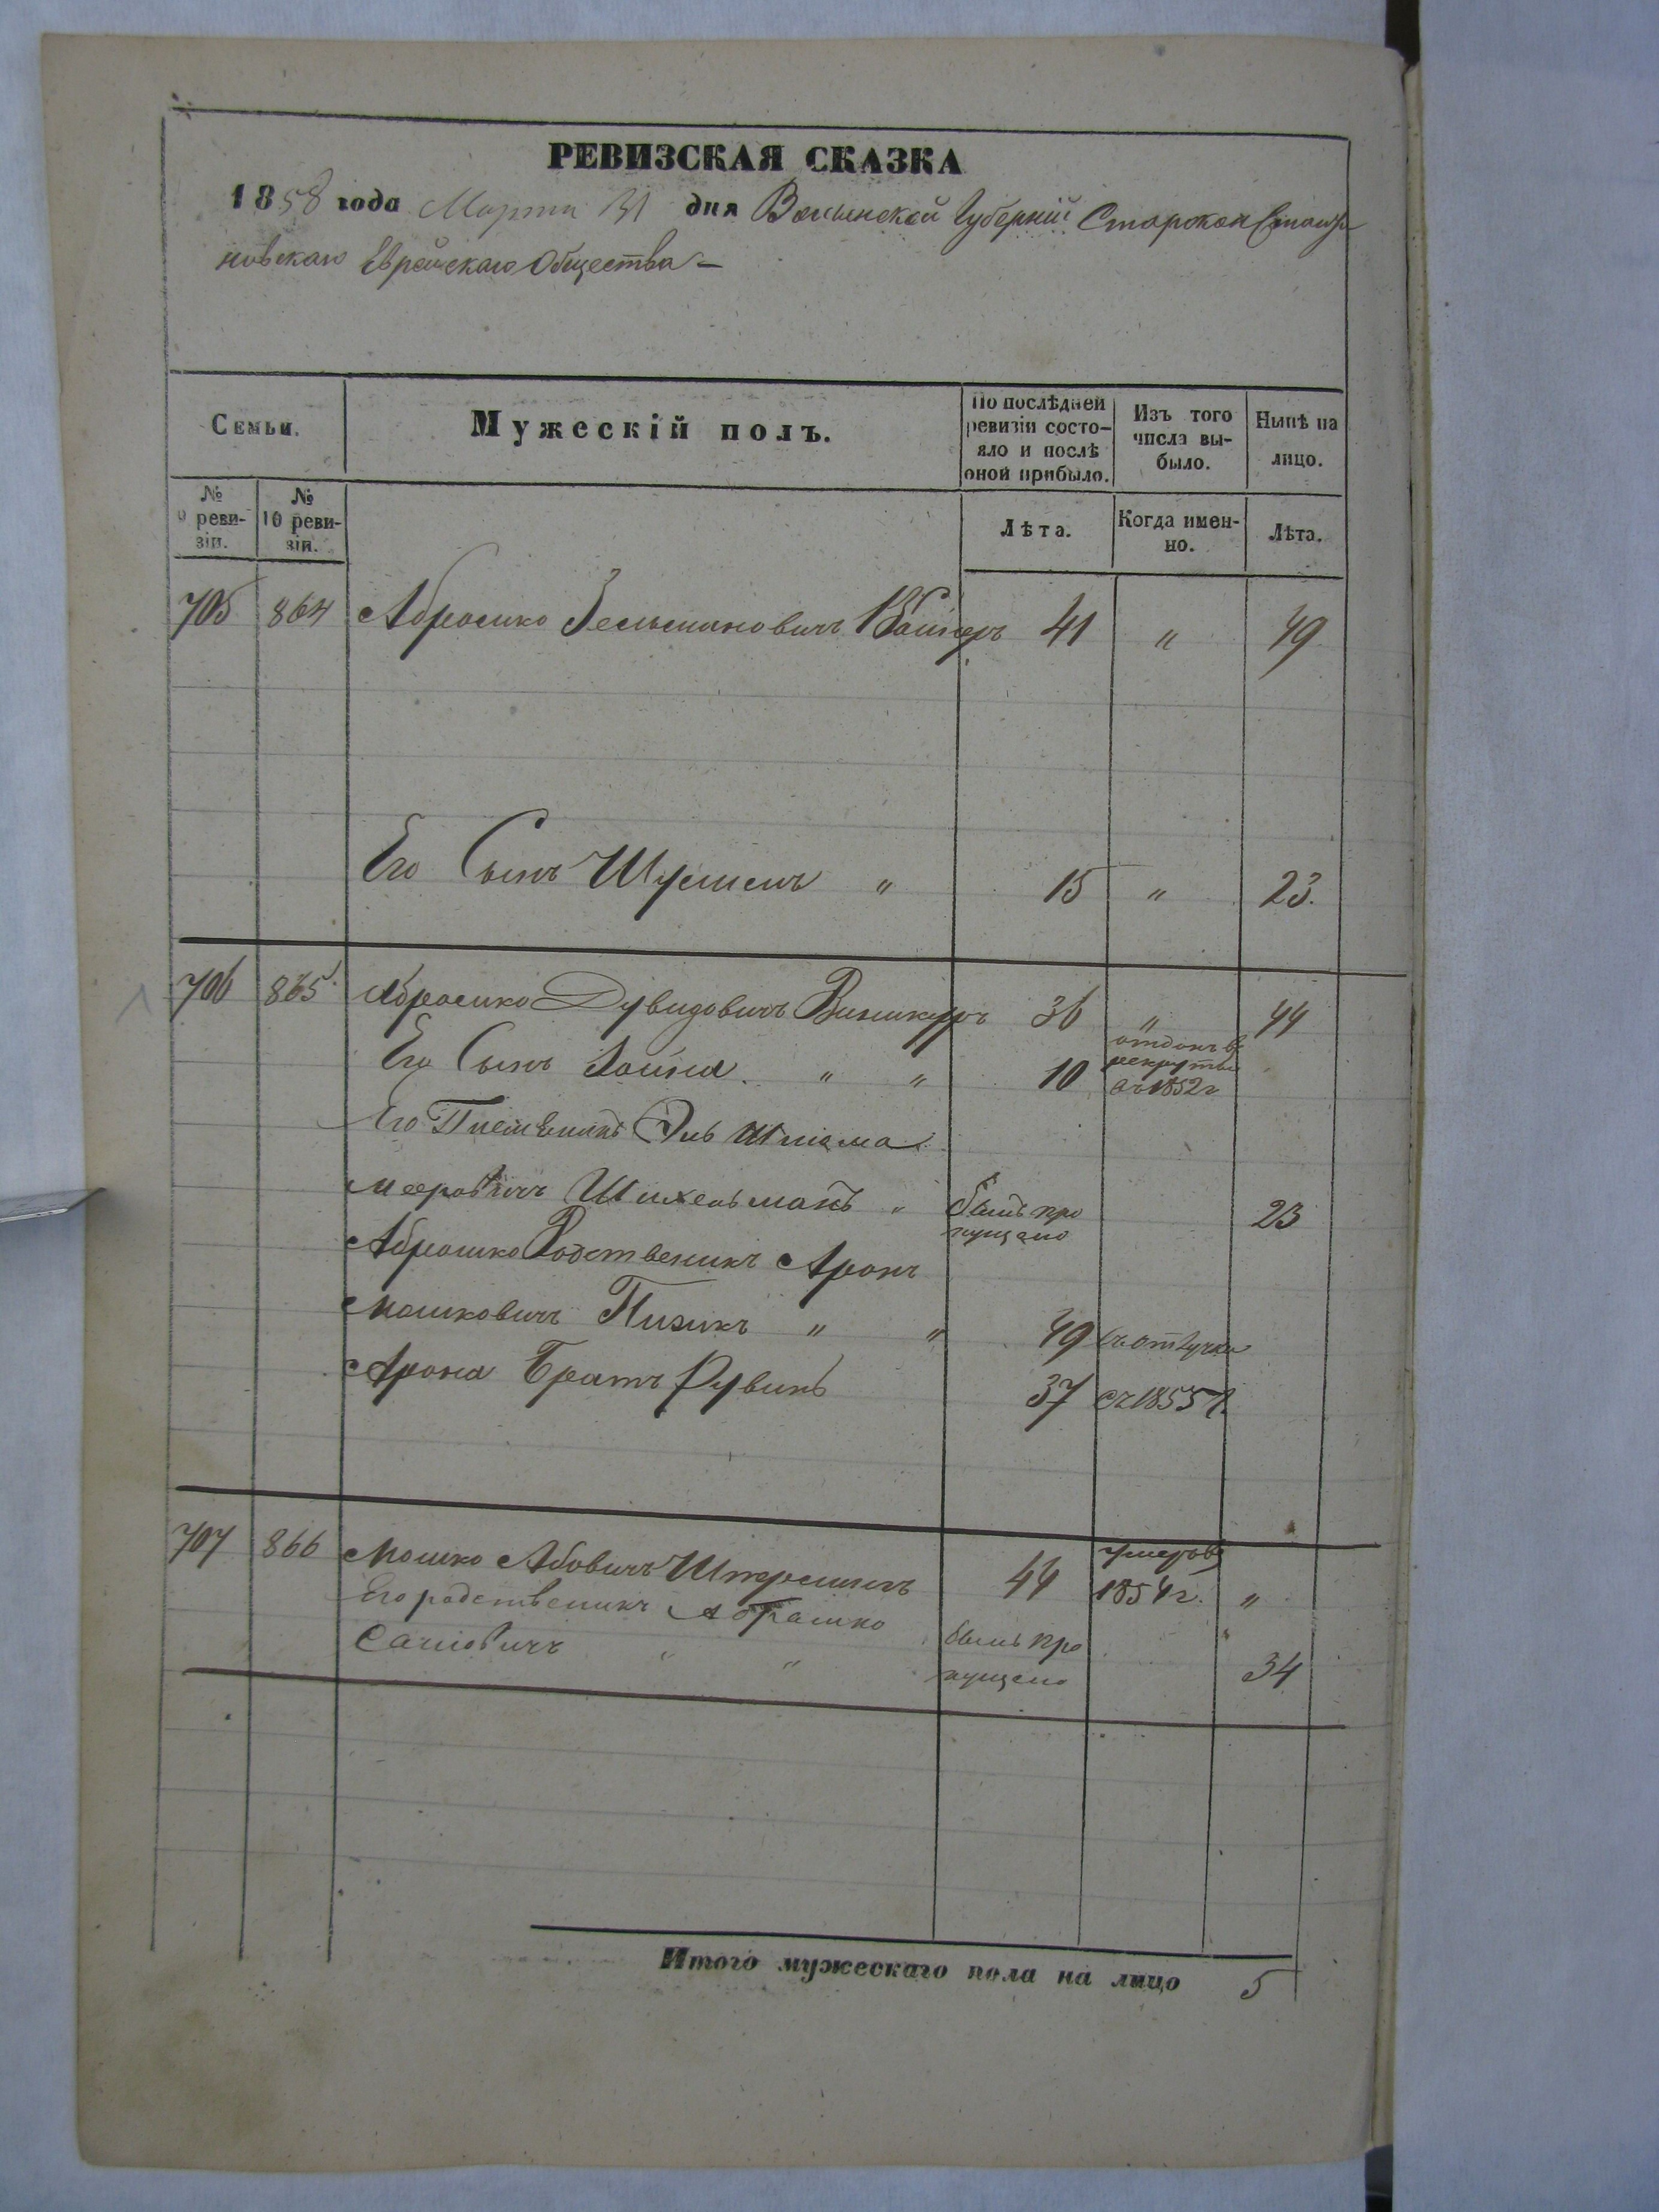 РЕВИЗСКАЯ СКАЗКА
1858 года Марта 31 дня Волынской Губерніи Староконстанти
новскаго Еврейскаго Общества
Семьи.
Мужескій полъ.
По послѣдней ревизіи состо-
яло и послѣ
оной прибыло.
Изъ того
числа вы-
было.
Нынѣ на
лицо.
№
9 реви-
зіи.
№
10 реви-
зіи.
Лѣта.
Когда имен-
но.
Лѣта.
705 864 Абрамко Зельмановичъ 41 " 49
Его Сынъ " 15 " 23.
706 865 Абрамко Дувидовичъ Виникуръ 36 " 44
Его Сынъ " " 10 отданъ в рекруты въ 1852 г
Его Племеникъ Эль Шлема
Мееровичъ " былъ про
пущено 23
Абрамко Родственикъ Аронъ
Мошковичъ " " 49 въ отлучки
Арона Братъ Рувинъ 37 съ 1855 г.
707 866 Мошко Абовичъ 44 умеръ в 1854 г. "
Его родственикъ Абрамко
" " былъ про
пущено 34
Итого мужескаго пола на лицо 5